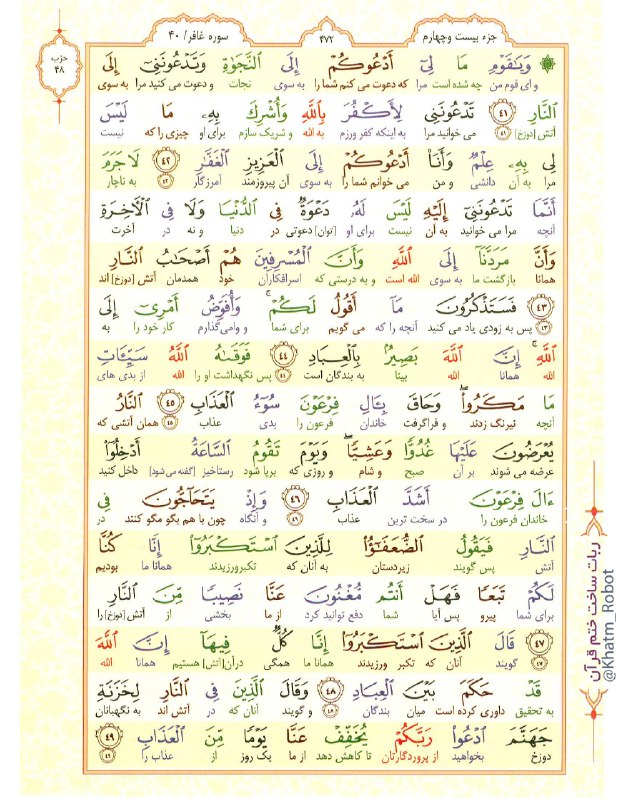 جزء بیست وچهارم
۴۷۲
سوره غافر/ ۴۰
حزب
۴۸
وَيَٰقَوْمِ مَا لِىٓ أَدْعُوكُمْ إِلَى ٱلنَّجَوٰةِ وَتَدْعُونَنِىٓ إِلَى
و ای قوم من چه شده است مرا که دعوت می کنم شما را به سوی نجات و دعوت می کنید مرا به سوی
ٱلنَّارِ ﴿۴۱﴾ تَدْعُونَنِى لِأَكْفُرَ بِٱللَّهِ وَأُشْرِكَ بِهِۦ مَا لَيْسَ
آتش [دوزخ] ۴۱ می خوانید مرا به اینکه کفر ورزم به الله و شریک سازم برای او چیزی را که نیست
لِى بِهِۦ عِلْمٌ وَأَنَا۠ أَدْعُوكُمْ إِلَى ٱلْعَزِيزِ ٱلْغَفَّٰرِ ﴿۴۲﴾ لَا جَرَمَ
مرا به آن دانشی و من می خوانم شما را به سوی آن پیروزمند آمرزگار ۴۲ به ناچار
أَنَّمَا تَدْعُونَنِىٓ إِلَيْهِ لَيْسَ لَهُۥ دَعْوَةٌ فِى ٱلدُّنْيَا وَلَا فِى ٱلْأَخِرَةِ
آنچه مرا می خوانید به آن نیست برای او [توان] دعوتی در دنیا و نه در آخرت
وَأَنَّ مَرَدَّنَآ إِلَى ٱللَّهِ وَأَنَّ ٱلْمُسْرِفِينَ هُمْ أَصْحَٰبُ ٱلنَّارِ
همانا بازگشت ما به سوی الله است و به درستی که اسرافکاران خود همدمان آتش [دوزخ] اند
﴿۴۳﴾ فَسَتَذْكُرُونَ مَآ أَقُولُ لَكُمْ ۚ وَأُفَوِّضُ أَمْرِىٓ إِلَى
۴۳ پس به زودی یاد می کنید آنچه را که می گویم برای شما و وامی گذارم کار خود را به
ٱللَّهِ ۚ إِنَّ ٱللَّهَ بَصِيرٌۢ بِٱلْعِبَادِ ﴿۴۴﴾ فَوَقَىٰهُ ٱللَّهُ سَيِّـَٔاتِ
الله همانا الله بینا به بندگان است ۴۴ پس نگهداشت او را الله از بدی های
مَا مَكَرُوا۟ ۖ وَحَاقَ بِـَٔالِ فِرْعَوْنَ سُوٓءُ ٱلْعَذَابِ ﴿۴۵﴾ ٱلنَّارُ
آنچه نیرنگ زدند و فراگرفت خاندان فرعون را بدی عذاب ۴۵ همان آتشی که
يُعْرَضُونَ عَلَيْهَا غُدُوًّا وَعَشِيًّا ۖ وَيَوْمَ تَقُومُ ٱلسَّاعَةُ أَدْخِلُوٓا۟
عرضه می شوند بر آن صبح و شام و روزی که برپا شود رستاخیز [گفته می شود] داخل کنید
ءَالَ فِرْعَوْنَ أَشَدَّ ٱلْعَذَابِ ﴿۴۶﴾ وَإِذْ يَتَحَآجُّونَ فِى
خاندان فرعون را در سخت ترین عذاب ۴۶ و آنگاه چون با هم بگو مگو کنند در
ٱلنَّارِ فَيَقُولُ ٱلضُّعَفَٰٓؤُا۟ لِلَّذِينَ ٱسْتَكْبَرُوٓا۟ إِنَّا كُنَّا
آتش پس گویند زیردستان به آنان که تکبرورزیدند همانا ما بودیم
لَكُمْ تَبَعًا فَهَلْ أَنتُم مُّغْنُونَ عَنَّا نَصِيبًا مِّنَ ٱلنَّارِ
برای شما پیرو پس آیا شما دفع توانید کرد از ما بخشی از آتش [دوزخ] را
﴿۴۷﴾ قَالَ ٱلَّذِينَ ٱسْتَكْبَرُوٓا۟ إِنَّا كُلٌّ فِيهَآ إِنَّ ٱللَّهَ
۴۷ گویند آنان که تکبر ورزیدند همانا ما همگی در آن [آتش] هستیم همانا الله
قَدْ حَكَمَ بَيْنَ ٱلْعِبَادِ ﴿۴۸﴾ وَقَالَ ٱلَّذِينَ فِى ٱلنَّارِ لِخَزَنَةِ
به تحقیق داوری کرده است میان بندگان ۴۸ و گویند آنان که در آتش اند به نگهبانان
جَهَنَّمَ ٱدْعُوا۟ رَبَّكُمْ يُخَفِّفْ عَنَّا يَوْمًا مِّنَ ٱلْعَذَابِ ﴿۴۹﴾
دوزخ بخواهید از پروردگارتان تا کاهش دهد از ما یک روز از عذاب را ۴۹
ربات ساخت ختم قرآن
@Khatm_Robot